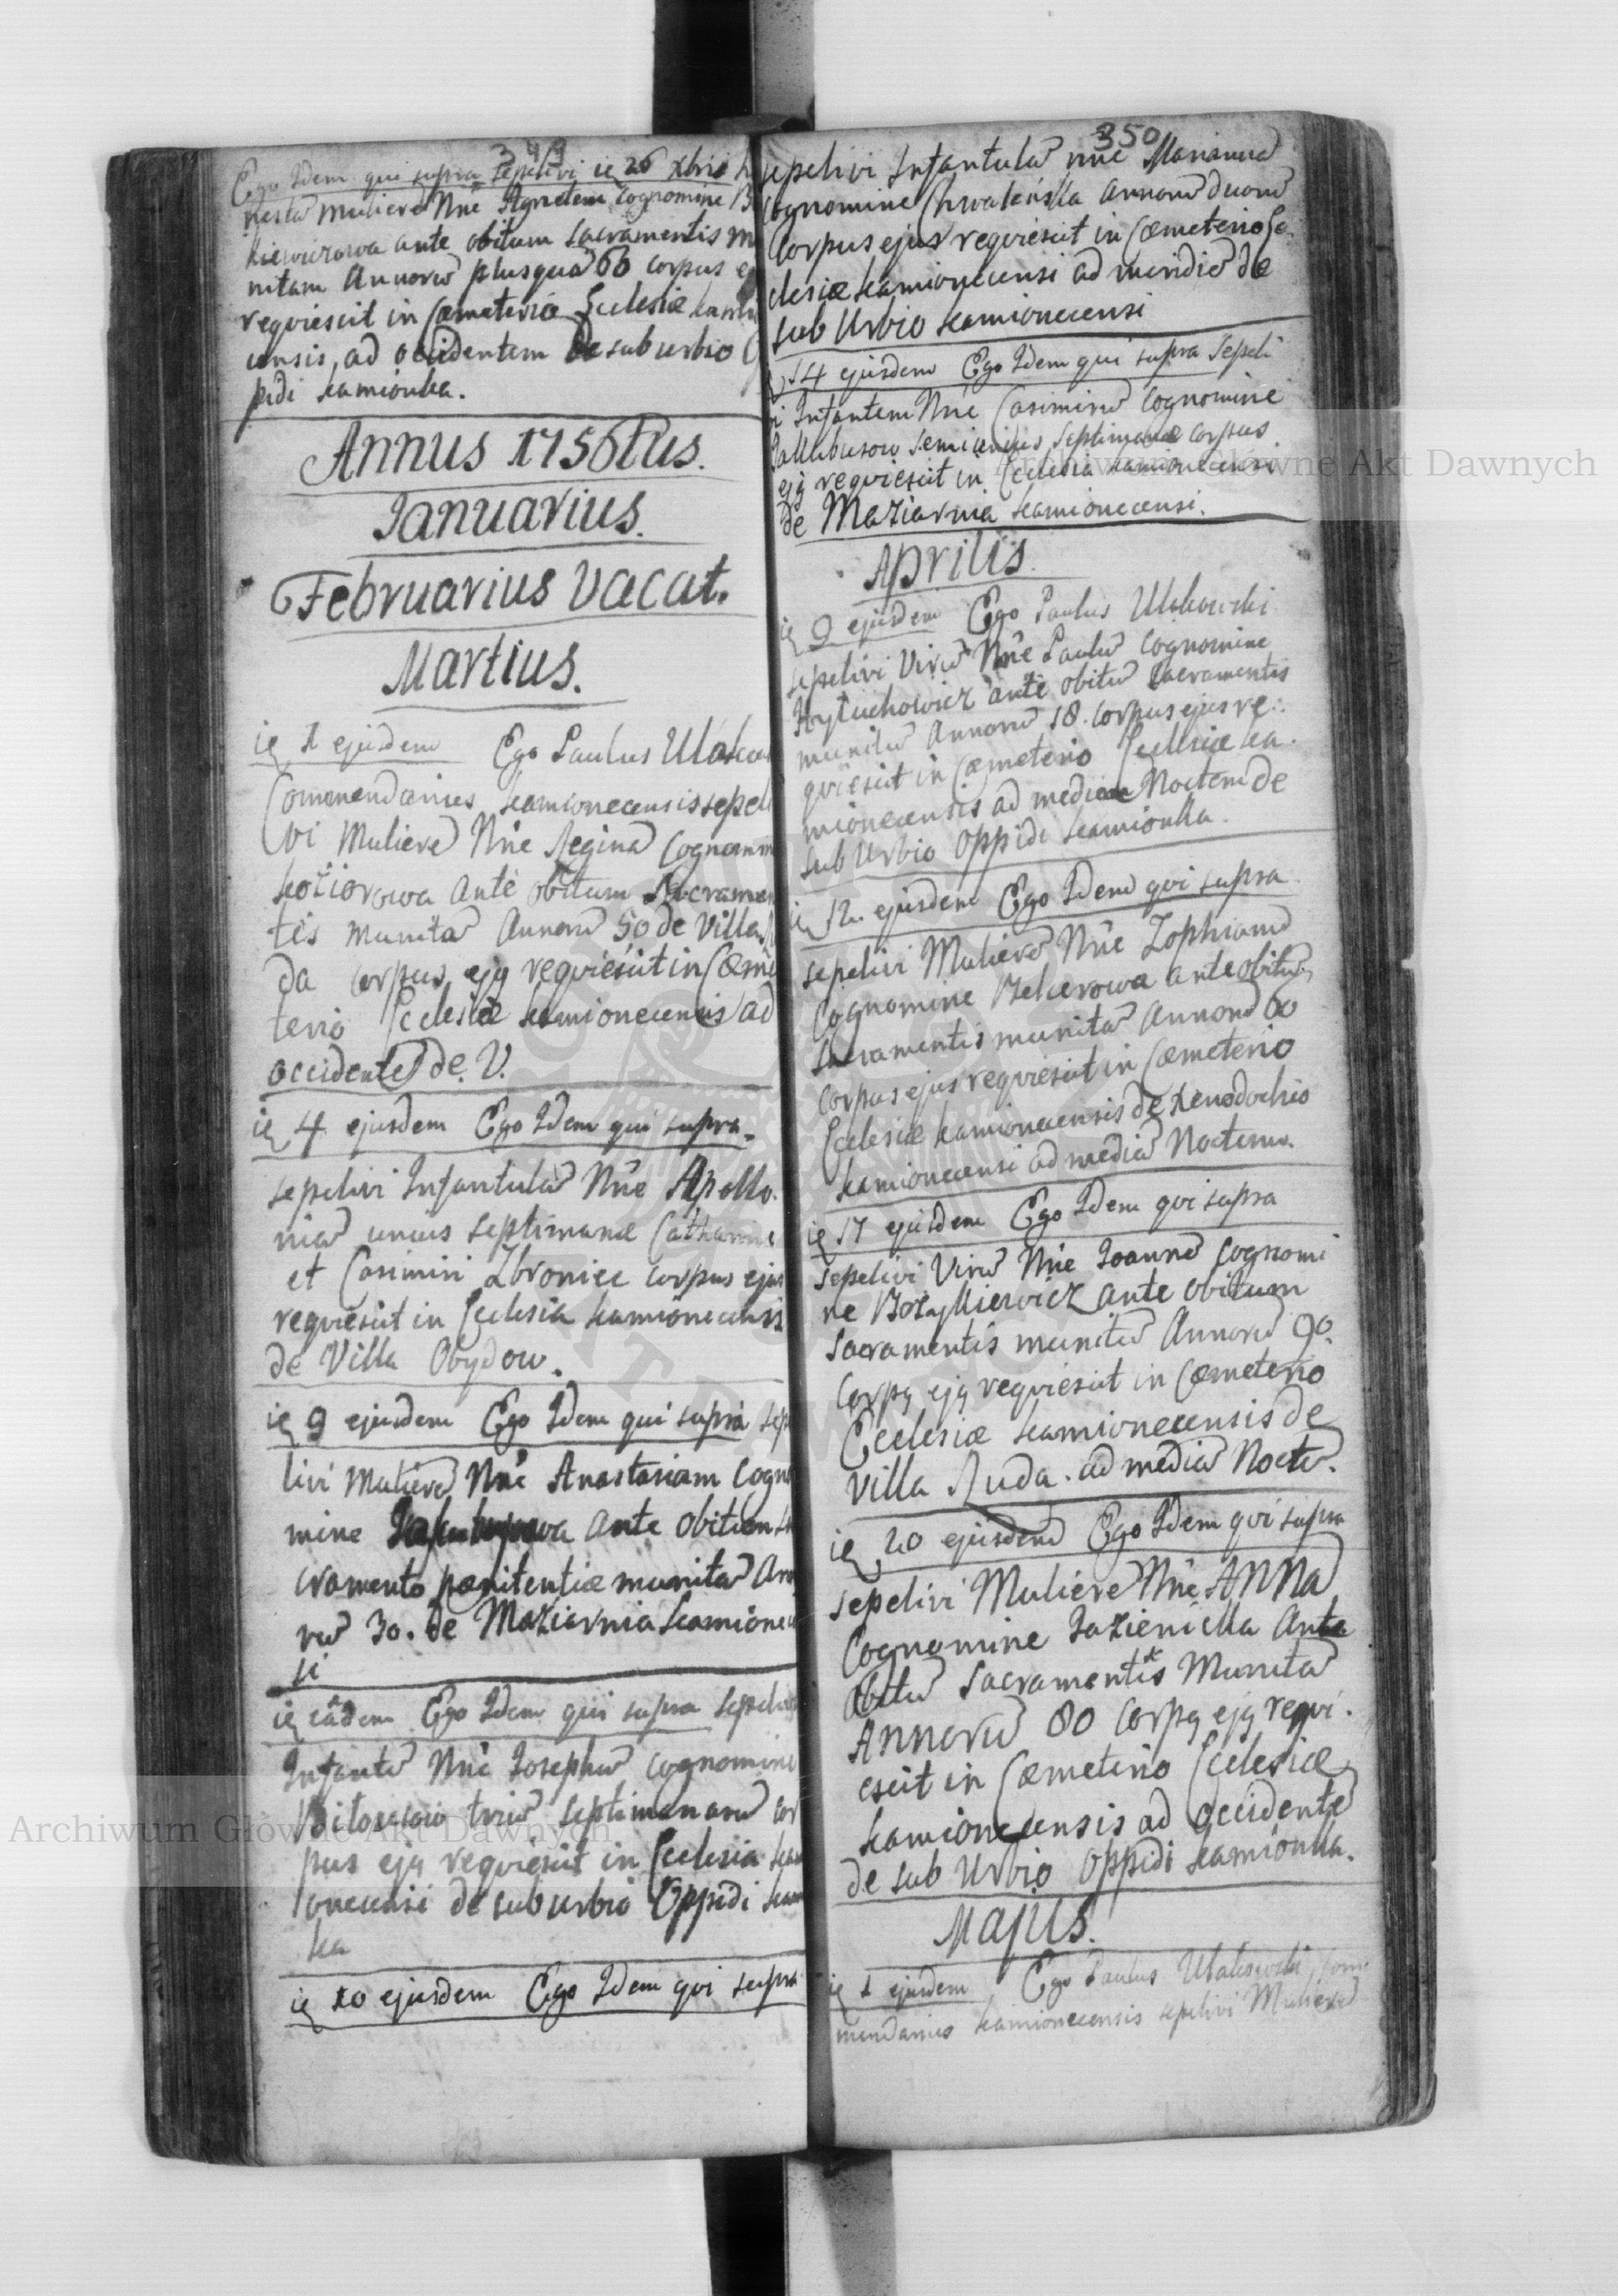 349
Ego Idem qui supra sepelivi ie 26 Xbris
nestā mulierē Nn̄e Agnetem cognomine
kiewiczowa ante obitum sacramentis
nitam Annorū plusquā 60 corpus
requiescit in Cæmeterio Ecclesiæ
censis, ad occidentem de suburbio
pidi Kamionka.
Annus 1756tus.
Januarius.
Februarius Vacat.
Martius.
ie 1 ejusdem Ego Paulus
Commendarius Kamionecensis sepeli
vi Mulierē Nn̄e Reginā Cognomin
Koziorowa Ante obitum Sacramen
tis munitā Annorū 50 de Villa
da corpus ejq requiescit in Cæme
terio Ecclesiæ Kamionecensis ad
occidentē de V.
ie 4 ejusdem Ego Idem qui supra.
sepelivi Infantulā Nn̄e Apollo
niā unius septimanæ Catharinæ
et Casimiri Zbroniec corpus ejus
requiescit in Ecclesia Kamionecensi
de Villa Obydow.
ie 9 ejusdem Ego Idem qui supra sepe
livi Mulierē Nn̄e Anastasiam Cogno
mine ante obitum sa
cramento pænitentiæ munitā Anno
rū 30. de Maziarnia Kamionecen
si
ie eâdem Ego Idem qui supra sepelivi
Infantē Nn̄e Josephū cognomine
triū septimanarū cor
pus ejq requiescit in Ecclesia Kam
ionecensi de suburbio Oppidi Kamion
ka
ie 10 ejusdem Ego Idem qui supra
350
sepelivi Infantulā nn̄e Mariannā
cognomine Chwaleńska annorū duorū
Corpus ejus requiescit in Cæmeterio Ec
clesiæ Kamionecensi ad meridiē de
sub Urbio Kamionecensi
14 ejusdem Ego Idem qui supra Sepeli
vi Infantem Nn̄e Casimirū Cognomine
septimanæ corpus
ejq requiescit in Ecclesia Kamionecensi
de Maziarnia Kamionecensi.
Aprilis.
ie 9 ejusdem Ego Paulus
sepelivi Virū Nn̄e Paulū Cognomine
ante obitū Sacramentis
munitū Annorū 18. corpus ejus re
quiescit in Cæmeterio Ecclesiæ Ka
mionecensis ad mediam Noctem de
sub Urbio Oppidi Kamionka.
ie 12 ejusdem Ego Idem qui supra
sepelivi Mulierē Nn̄e Zophiam
Cognomine ante obitū
sacramentis munitā Annorū 60
corpus ejus requiescit in Cæmeterio
Ecclesiæ Kamionecensis de Xenodochio
Kamionecensi ad mediā Noctem.
ie 17 ejusdem Ego Idem qui supra
sepelivi Virū Nn̄e Joannē Cognomi
ne ante obitum
Sacramentis munitū Annorū 90.
Corpq ejq requiescit in Cæmeterio
Ecclesiæ Kamionecensis de
villa Ruda. ad mediā Noctē.
ie 20 ejusdem Ego Idem qui supra
sepelivi Mulierē Nn̄e ANNā
Cognomine Jazienicka Ante
obitū Sacramentis Munitā
Annorū 80 Corpq ejq requi
escit in Cæmeterio Ecclesiæ
Kamionecensis ad occidentē
de sub Urbio Oppidi Kamionka.
Majus.
ie 1 ejusdem Ego Paulus Com
mendarius Kamionecensis sepelivi Mulierē
Archiwum Główne Akt Dawnych
Archiwum Główne Akt Dawnych